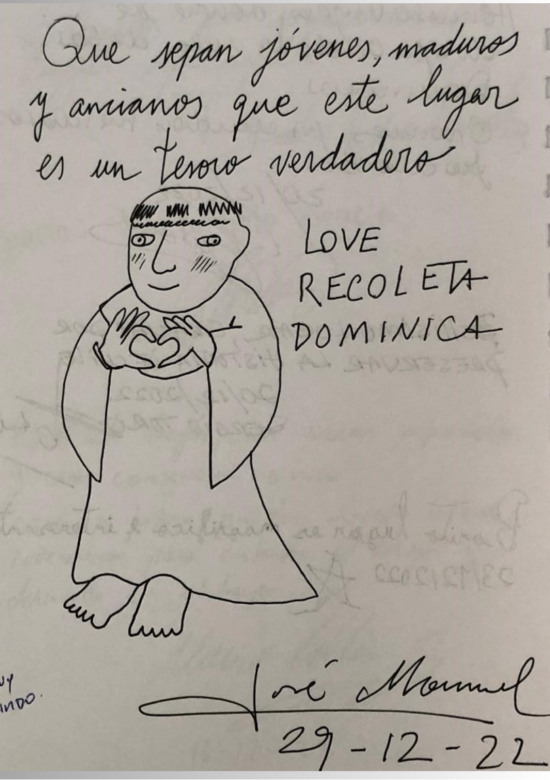 Que sepan jóvenes, maduros
y ancianos que este lugar
es un tesoro verdadero
LOVE
RECOLETA
DOMINICA
José Manuel
29-12-22